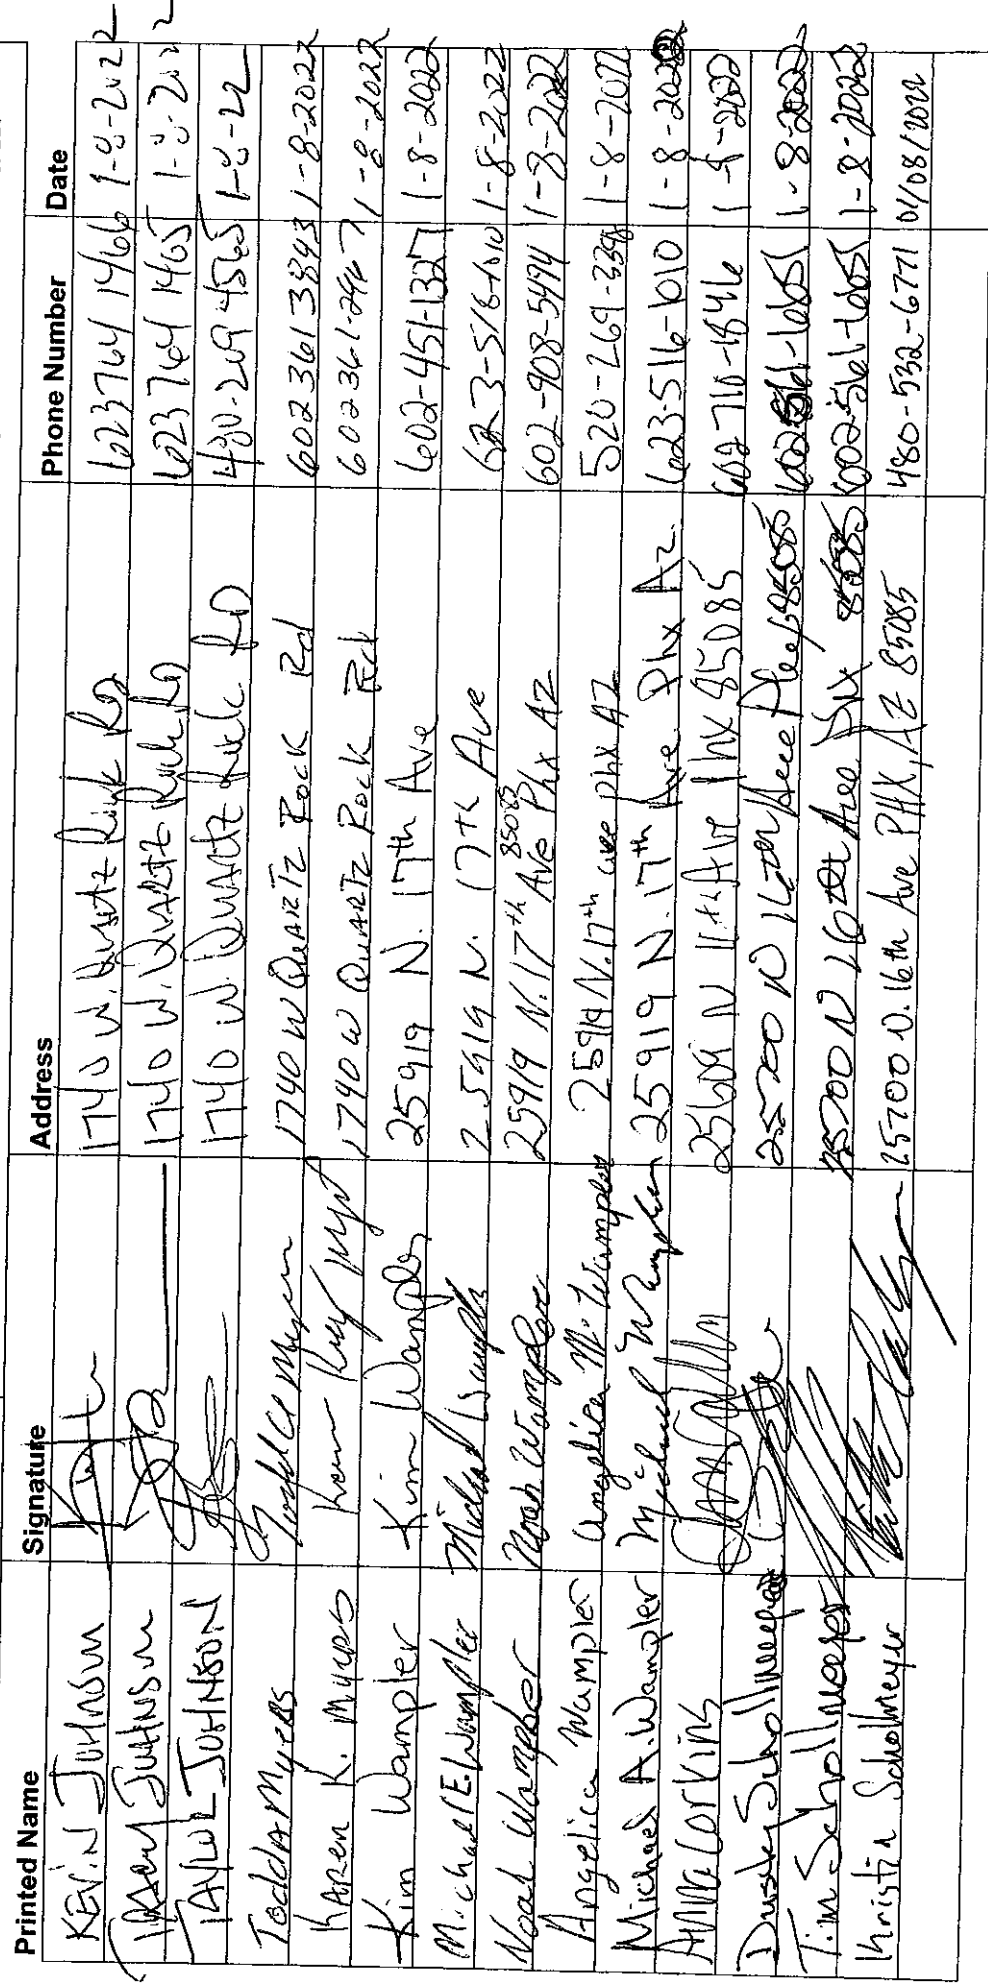 Printed Name Signature Address Phone Number Date
KEVIN JOHNSON 1740 W. Quartz Rock RD 623 764 1466 1-8-2022
TRACEY JOHNSON 1740 W. QUARTZ Rock RD 623 764 1465 1-8-202
TAYLOR JOHNSON 1740 W. Quartz Rock RD 480-209 4565 1-8-22
Todd A Myers 1740 W QUARTZ ROCK Rd 602 361 3843 1-8-2022
KAREN K. MYERS 1740 W QUARTZ ROCK Rd 602 361-2967 1-8-2022
Kim Wampler Kim Wampler 25919 N. 17th Ave 602-451-1327 1-8-2022
Michael E. Wampler Michael Wampler 25919 N. 17th Ave 623-516-1010 1-8-2022
Noah Wampler Noah Wampler 25919 N. 17th Ave Phx AZ 85085 602-908-5494 1-8-2022
Angelica Wampler Angelica M. Wampler 25919 N. 17th ave phx AZ 520-269-3398 1-8-2022
Michael A. Wampler Michael Wampler 25919 N. 17th Ave Phx Az. 623-516-1010 1-8-2022
Anna Corkins 25609 N 17th Ave Phx 85085 602 710-1846 1-8-2022
Dusty Schollmeyer 25700 N 16th Ave 85085 602-561-1651 1-8-2022
Tim Schollmeyer 25700 N 16th Ave Phx 85085 602-561-1651 1-8-2022
Kristin Schollmeyer 25700 N. 16th Ave PHX, AZ 85085 480-532-6771 01/08/2022